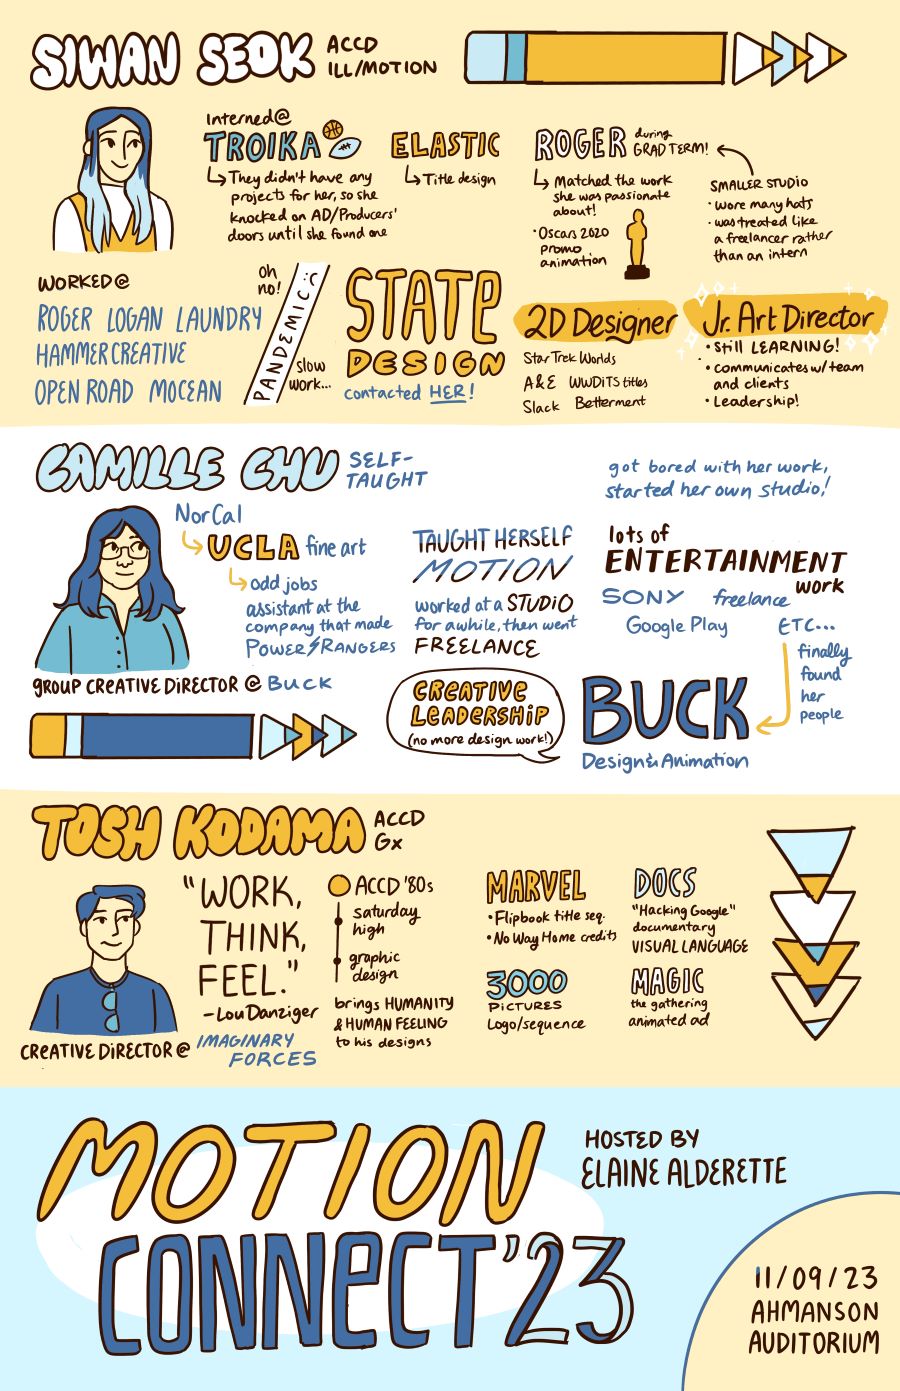 SIWAN SEOK
ACCD
ILL/MOTION
Interned@
TROIKA
They didn't have any
projects for her, so she
knocked on AD/Producers'
doors until she found one
ELASTIC
Title design
ROGER
during
GRAD TERM!
Matched the work
she was passionate
about!
• Oscars 2020
promo
animation
SMALLER STUDIO
• wore many hats
• was treated like
a freelancer rather
than an intern
WORKED@
ROGER LOGAN LAUNDRY
HAMMER CREATIVE
OPEN ROAD MOCEAN
oh
no!
PANDEMIC
slow
work...
STATE
DESIGN
contacted HER!
2D Designer
Star Trek Worlds
A&E WWDITS titles
Slack Betterment
Jr. Art Director
• Still LEARNING!
• communicates w/ team
and clients
• Leadership!
CAMILLE CHU
SELF-
TAUGHT
NorCal
UCLA fine art
odd jobs
assistant at the
company that made
POWER RANGERS
GROUP CREATIVE DIRECTOR @ BUCK
TAUGHT HERSELF
MOTION
worked at a STUDIO
for awhile, then went
FREELANCE
got bored with her work,
started her own studio!
lots of
ENTERTAINMENT
work
SONY freelance
Google Play ETC...
finally
found
her
people
CREATIVE
LEADERSHIP
(no more design work!)
BUCK
Design & Animation
TOSH KODAMA
ACCD
Gx
"WORK,
THINK,
FEEL."
- Lou Danziger
CREATIVE DIRECTOR @ IMAGINARY
FORCES
ACCD '80s
saturday
high
graphic
design
brings HUMANITY
& HUMAN FEELING
to his designs
MARVEL
• Flipbook title seq.
• No Way Home credits
3000
PICTURES
Logo/sequence
DOCS
"Hacking Google"
documentary
VISUAL LANGUAGE
MAGIC
the gathering
animated ad
MOTION
CONNECT '23
HOSTED BY
ELAINE ALDERETTE
11/09/23
AHMANSON
AUDITORIUM